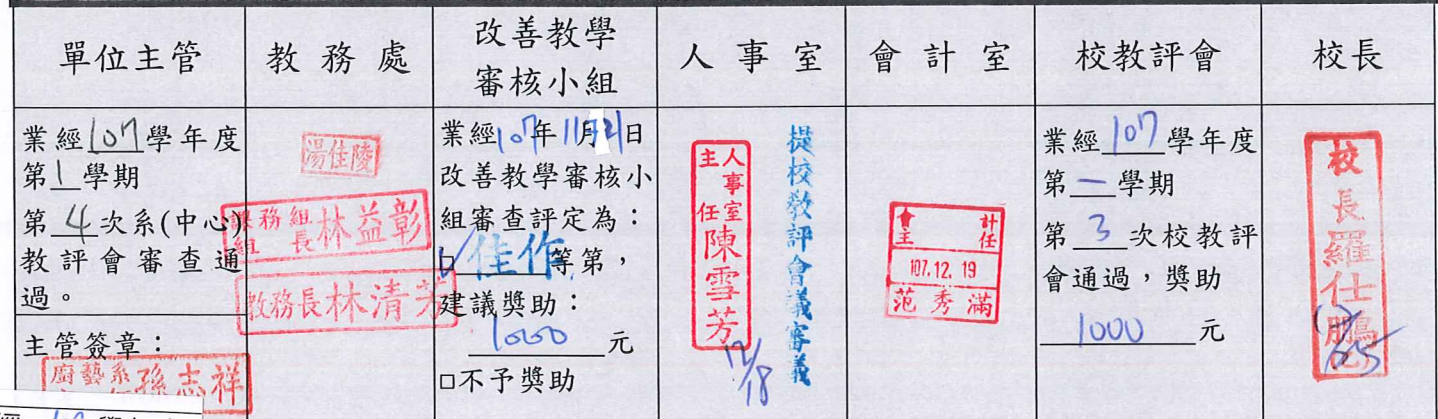 單位主管
教務處
改善教學
審核小組
人事室
會計室
校教評會
校長
業經107學年度
第1學期
第4次系(中心)
教評會審查通
過。
主管簽章：
廚藝系
孫志祥
湯佳陵
課務組
組長
林益彰
教務長林清芳
業經107年11月21日
改善教學審核小
組審查評定為：
佳作等第，
建議獎助：
1000元
□不予獎助
人事室
主任
陳雪芳
12/18
提校教評會議審議
會計
主任
107.12.19
范秀滿
業經107學年度
第一學期
第3次校教評
會通過，獎助
1000元
校長羅仕鵬